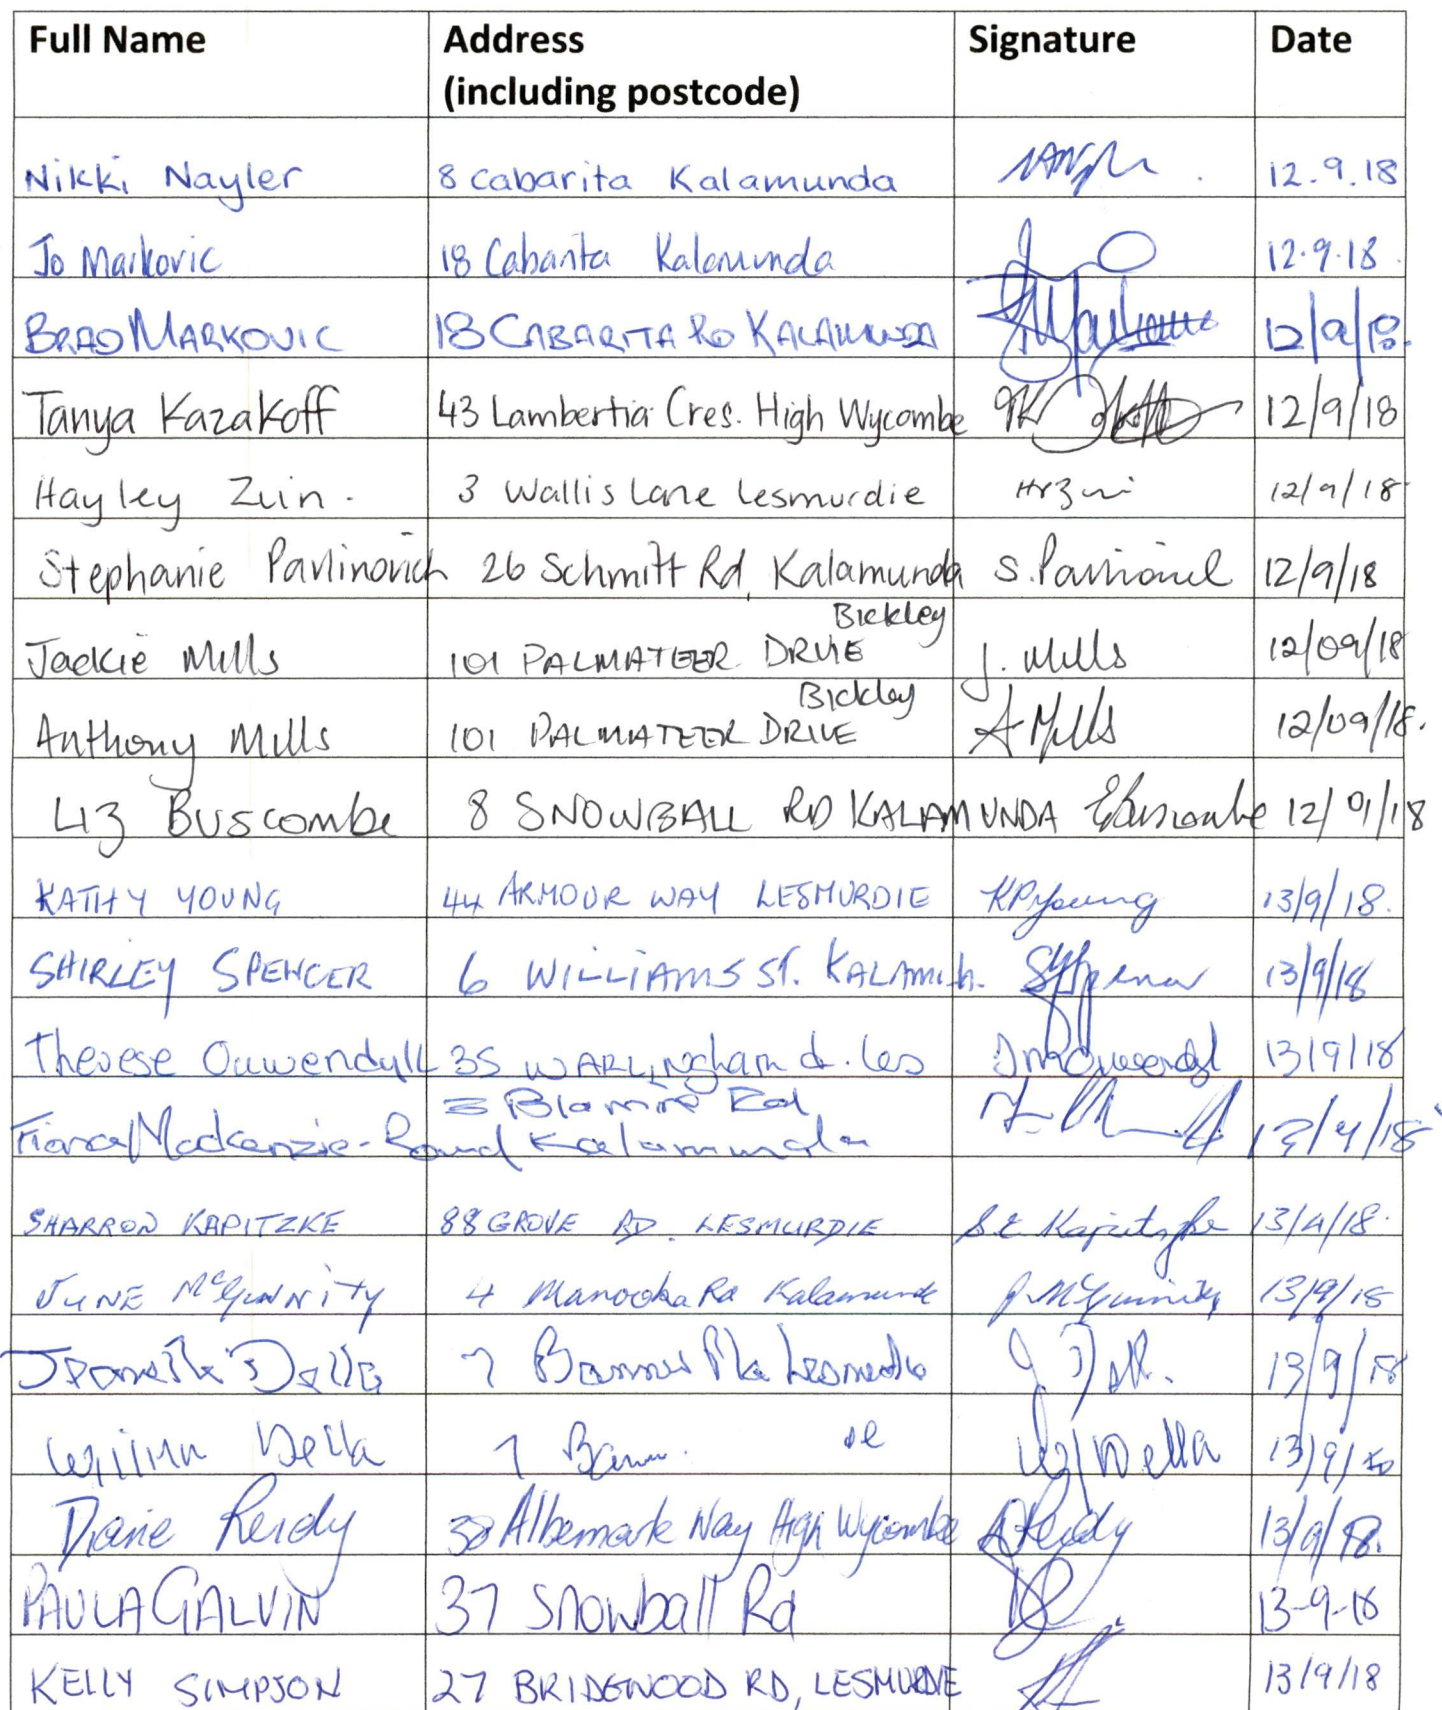 Full Name Address Signature Date
(including postcode)
Nikki Nayler 8 Cabarita Kalamunda 12.9.18
Jo Markovic 18 Cabarita Kalamunda 12.9.18
BRAD MARKOVIC 18 CABARITA RD KALAMUNDA 12/9/18
Tanya Kazakoff 43 Lambertia Cres. High Wycombe 12/9/18
Hayley Zuin. 3 Wallis Lane Lesmurdie 12/9/18
Stephanie Pavlinovich 26 Schmitt Rd, Kalamunda 12/9/18
Bickley
Jackie Mills 101 PALMATEER DRIVE J. Mills 12/09/18
Bickley
Anthony Mills 101 PALMATEER DRIVE A Mills 12/09/18.
Liz Buscombe 8 SNOWBALL RD KALAMUNDA EBuscombe 12/9/18
KATHY YOUNG 44 ARMOUR WAY LESMURDIE KPYoung 13/9/18.
SHIRLEY SPENCER 6 WILLIAMS ST. 13/9/18
Therese Ouwendyk 35 WARLINGham d. Les 13/9/18
3 Rd,
Mackenzie- Kalamunda
SHARRON KAPITZKE 88 GROVE RD. LESMURDIE S.E. Kapitzke
JUNE McGUNNITY 4 Rd Kalamunda 13/9/18
Della 7 Lesmurdie 13/9/18
Della 7 Della 13/9/18
Diane Reidy Albemarle Way High Wycombe Reidy 13/9/18.
PAULA GALVIN 37 Snowball Rd 13-9-18
KELLY SIMPSON 27 BRIDGWOOD RD, LESMURDIE 13/9/18